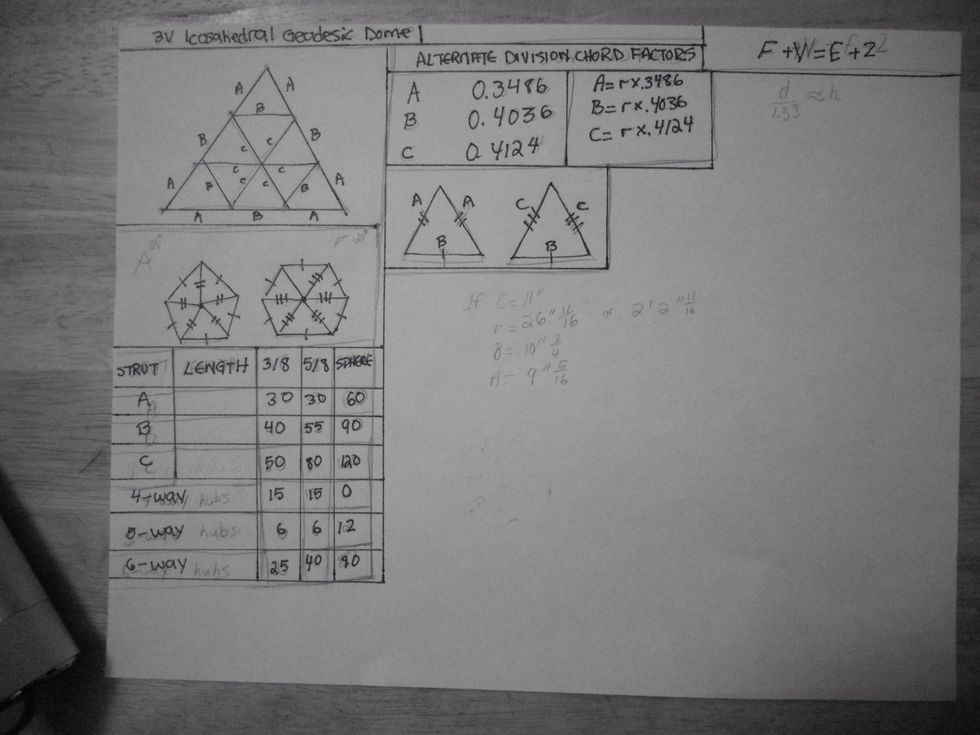 3V Icosahedral Geodesic Dome
F + V = E + 2
ALTERNATE DIVISION CHORD FACTORS
A 0.3486
B 0.4036
C 0.4124
A = r x .3486
B = r x .4036
C = r x .4124
d/1.33 ≈ h
A A
B
B B
C C
C C
A B C C B A
A B A
A A
B
C C
B
If C = 11"
r = 26" 11/16 or 2' 2" 11/16
B = 10" 3/4
A = 9" 5/16
STRUT LENGTH 3/8 5/8 SPHERE
A 30 30 60
B 40 55 90
C 50 80 120
4-way hubs 15 15 0
5-way hubs 6 6 12
6-way hubs 25 40 80